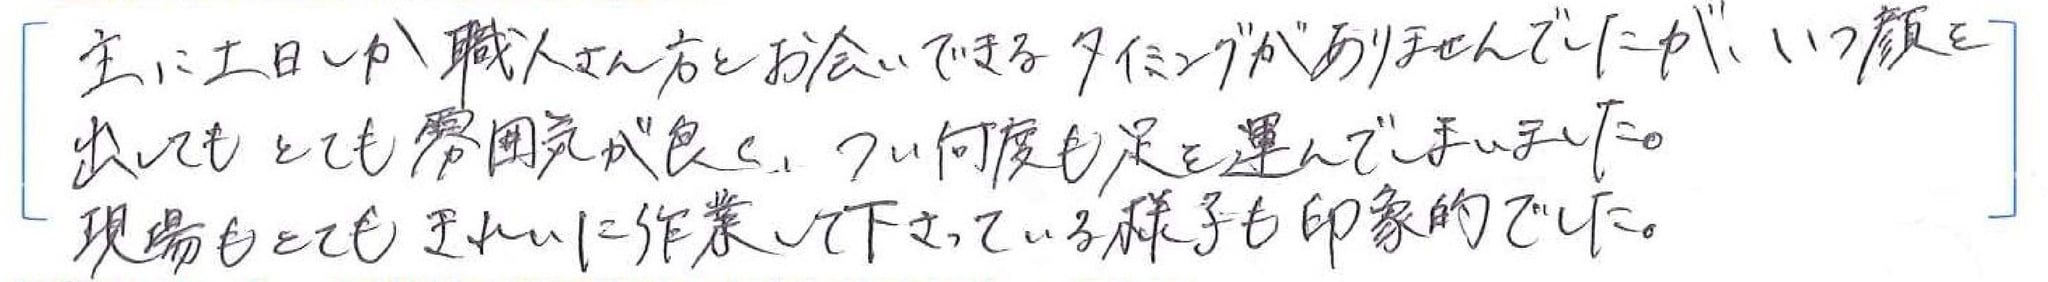 主に土日しか職人さん方とお会いできるタイミングがありませんでしたが、いつ顔を
出してもとても雰囲気が良く、つい何度も足を運んでしまいました。
現場もとてもきれいに作業して下さっている様子も印象的でした。